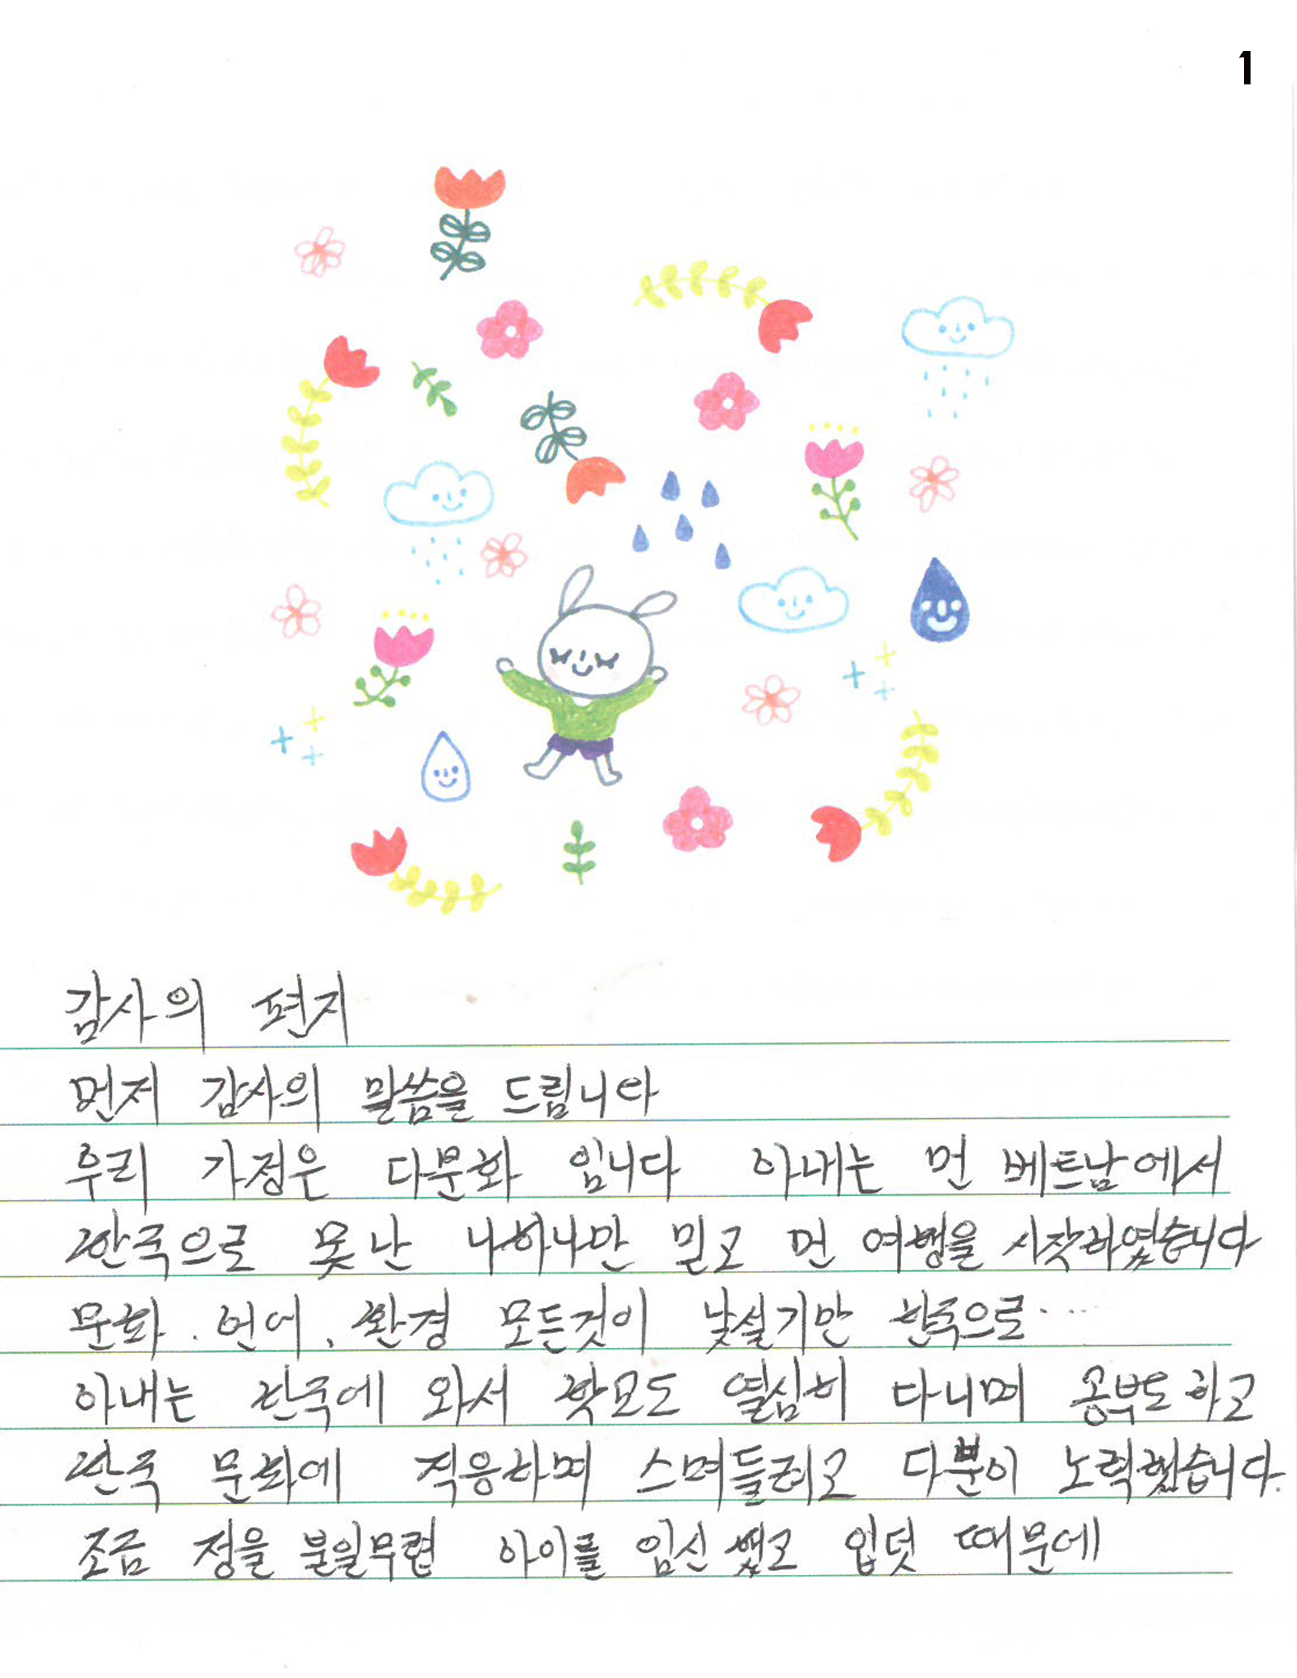 1
감사의 편지
먼저 감사의 말씀을 드립니다
우리 가정은 다문화 입니다 아내는 먼 베트남에서
한국으로 못난 나하나만 믿고 먼 여행을 시작하였습니다
문화. 언어, 환경 모든것이 낯설기만 한국으로.....
아내는 한국에 와서 학교도 열심히 다니며 공부도 하고
한국 문화에 적응하며 스며들려고 다분이 노력했습니다.
조금 정을 붙일무렵 아이를 임신 했고 입덧 때문에